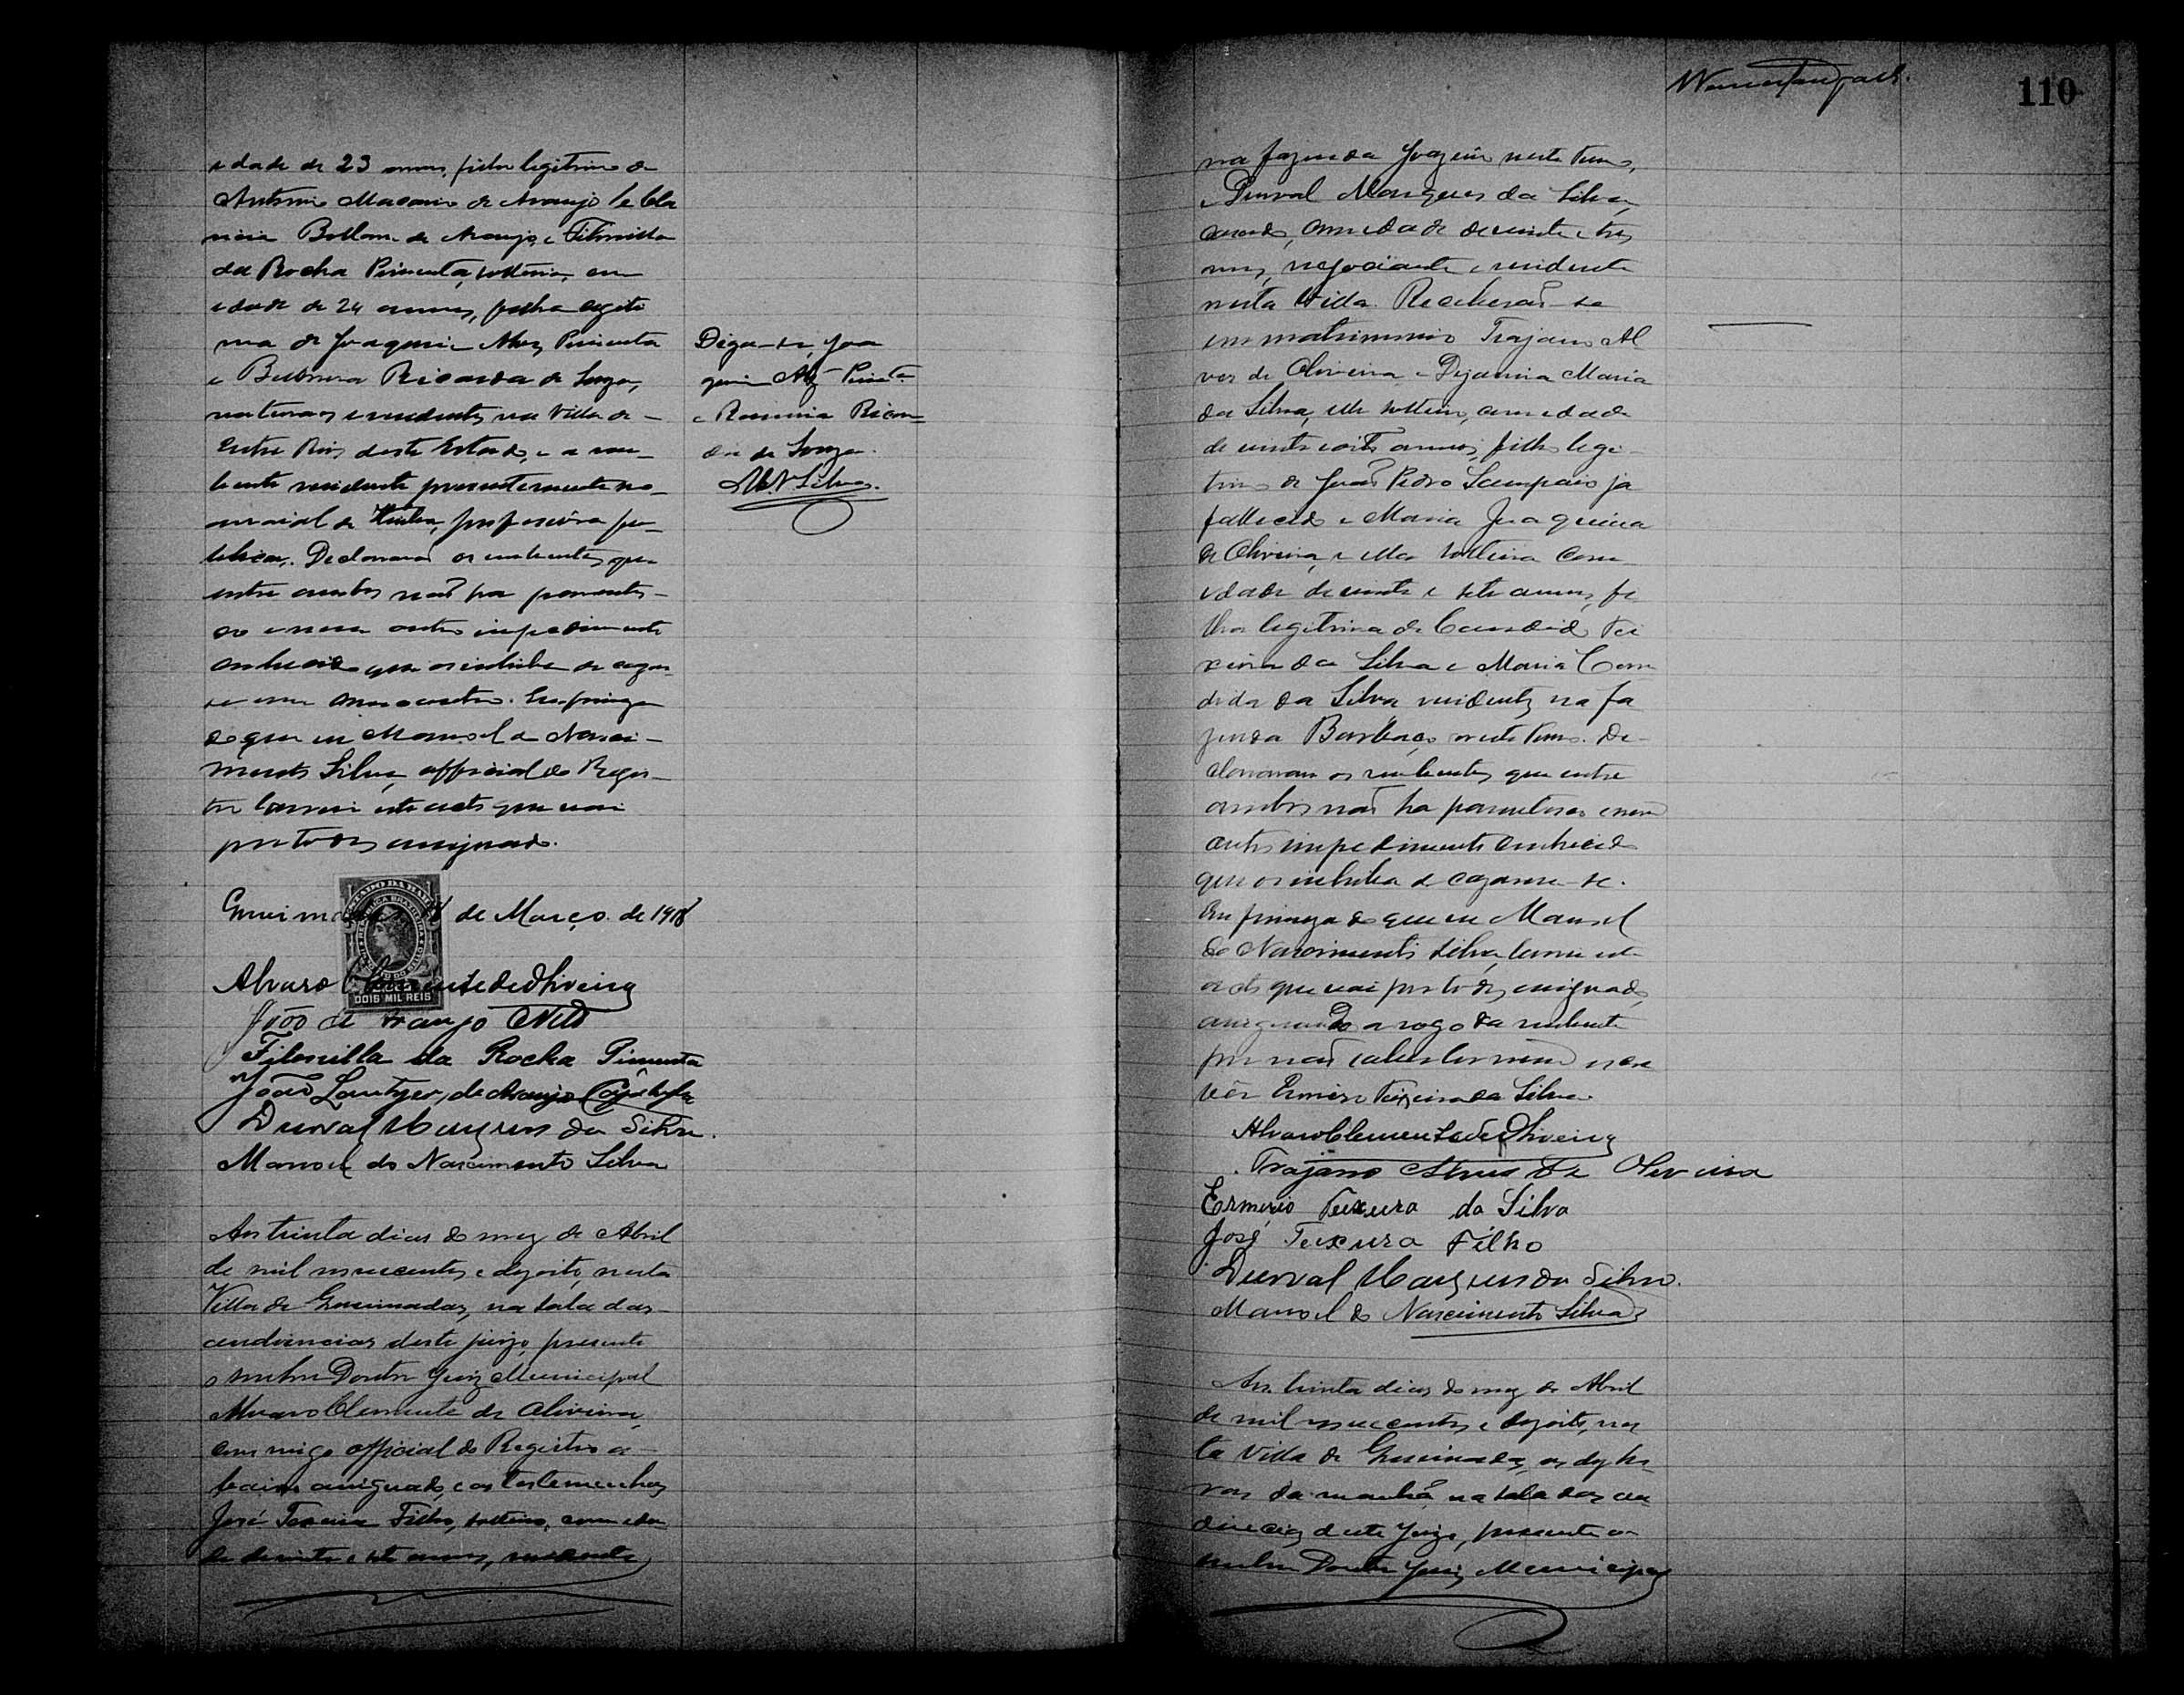 edade de 23 annos, filho legitimo de
Antonio Macario de Araujo e
de Araujo, e Filonilla
da Rocha Pimenta, solteira, com
edade de 24 annos, filha legiti
ma de Joaquim Alves Pimenta
e Ricarda de Souza,
naturaes e residentes na Villa de
Entre Rios deste Estado, e a nu-
bente residente presentemente no
arraial de professora pu-
blica. Declararão os nubentes que
entre ambos não ha parentes-
co e nem outro impedimento
conhecido que os inhiba de cazar-
se um com o outro. Em firmeza
do que eu Manoel do Nasci-
mento Silva, official do Regis-
tro lavrei este acto que vai
por todos assignado.
de Março de 1918
Alvaro Clemente de Oliveira
João de Araujo Netto
Filonilla da Rocha Pimenta
João de Araujo
Durval Marques da Silva.
Manoel do Nascimento Silva
Aos trinta dias do mez de Abril
de mil novecentos e dezoito, nesta
Villa de Queimadas, na sala das
audiencias deste juizo, presente
o senhor Doutor Juiz Municipal
Alvaro Clemente de Oliveira,
commigo official do Registro a-
baixo assignado, e as testemunhas
José Teixeira Filho, solteiro, com eda-
de de vinte e sete annos, residente
Diga-se, Joa
quim Alz Pimta
e Ricar-
da de Souza.
M N Silva.
110
na fazenda neste termo,
e Durval Marques da Silva,
casado, com edade de vinte e tres
annos, negociante e residente
nesta Villa. Receberão-se
em matrimonio Trajano Al
ves de Oliveira e Dejanira Maria
da Silva, elle solteiro, com edade
de vinte e oito annos, filho legi-
timo de João Pedro Sampaio já
fallecido e Maria Joaquina
de Oliveira, e ella solteira com
edade de vinte e sete annos, fi
lha legitima de Candido Tei
xeira da Silva e Maria Can
dida da Silva residentes na fa
zenda neste termo. De-
clararam os nubentes que entre
ambos não ha parentesco e nem
outro impedimento conhecido
que os inhiba de cazarem-se.
Em firmeza do que eu Manoel
do Nascimento Silva, lavrei este
acto que vai por todos assignado,
assignando a rogo da nubente
por não saber ler nem escre
ver Ermirio Teixeira da Silva.
Alvaro Clemente de Oliveira
Trajano Alves de Oliveira
Ermirio Teixeira da Silva
José Teixeira Filho
Durval Marques da Silva.
Manoel do Nascimento Silva
Aos trinta dias do mez de Abril
de mil novecentos e dezoito, nes
ta Villa de Queimadas, as dez ho-
ras da manhã, na sala das au
diencias deste Juizo, presente o
senhor Doutor Juiz Municipal
ESTADO DA BAHIA
DOIS MIL REIS